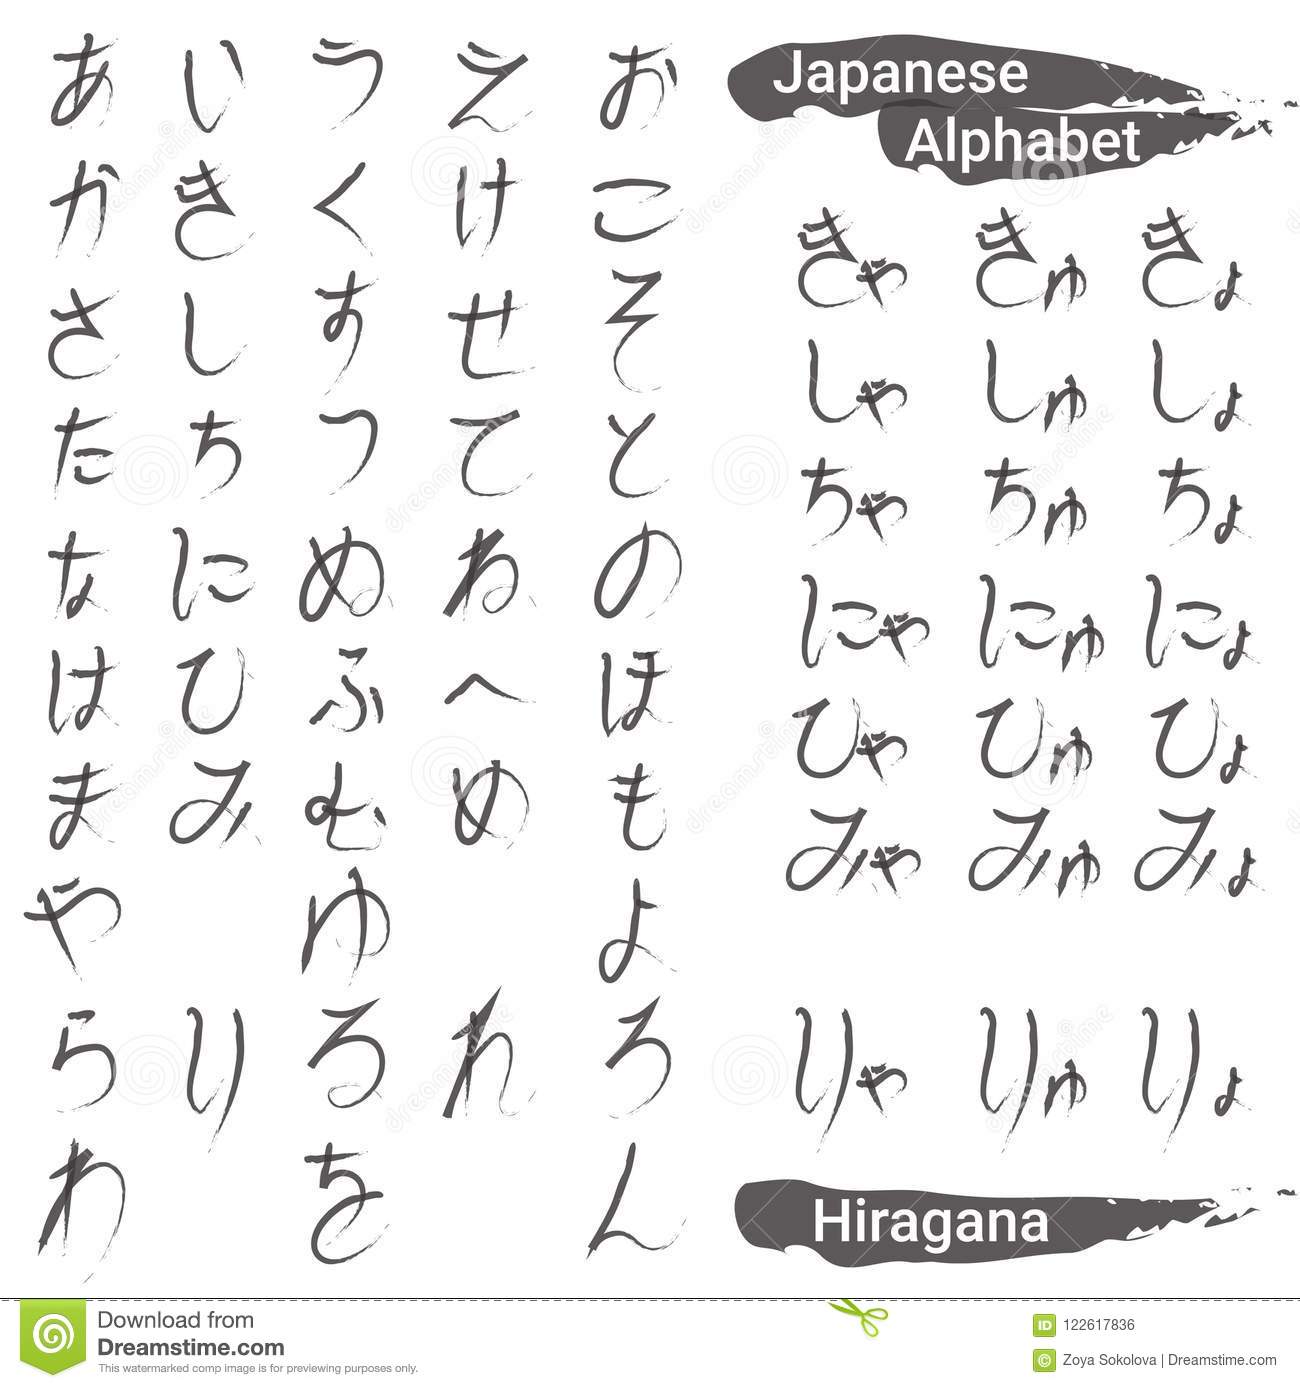 あ い う え お
か き く け こ
さ し す せ そ
た ち つ て と
な に ぬ ね の
は ひ ふ へ ほ
ま み む め も
や ゆ よ
ら り る れ ろ
わ を ん
Japanese
Alphabet
きゃ きゅ きょ
しゃ しゅ しょ
ちゃ ちゅ ちょ
にゃ にゅ にょ
ひゃ ひゅ ひょ
みゃ みゅ みょ
りゃ りゅ りょ
Hiragana
Download from
Dreamstime.com
This watermarked comp image is for previewing purposes only.
ID 122617836
© Zoya Sokolova | Dreamstime.com